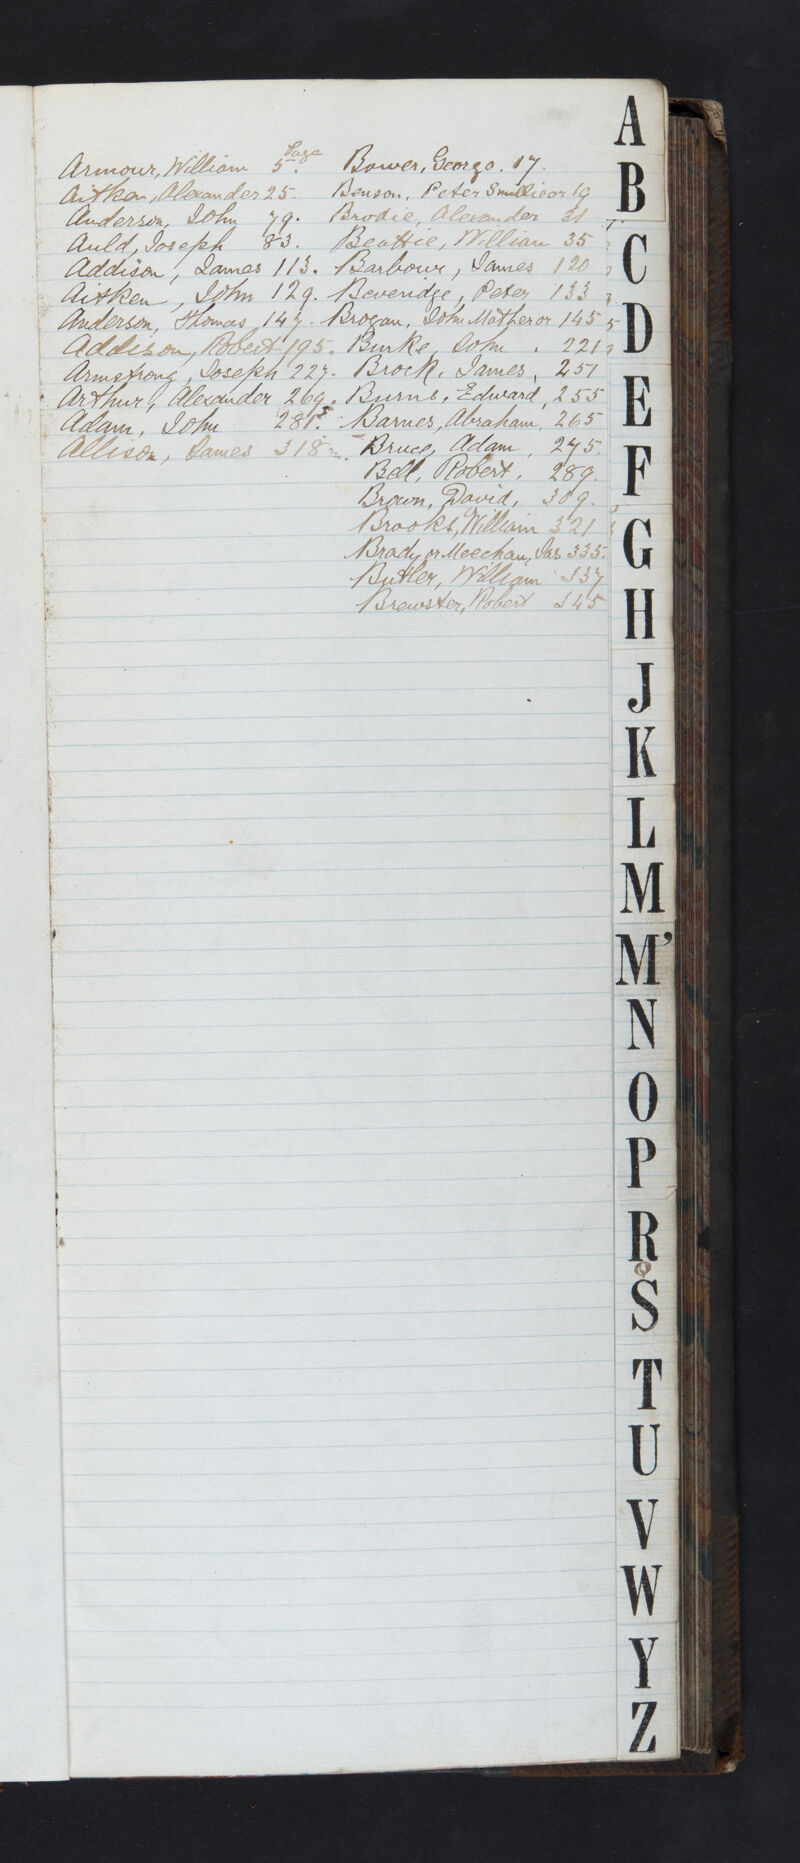 Page
Armour, William 5. Bower, George. 17.
Aitken, Alexander 25. Benson, Peter Smillie or 19
Anderson, John 79. Brodie, Alexander 31
Auld, Joseph 83. Beattie, William 35
Addison, James 113. Barbour, James 120
Aitken, John 129. Beveridge, Peter 133
Anderson, Thomas 147. Brogan, John Mather or 145
Addison, Robert 195. Burke, John. 221
Armstrong, Joseph 227. Brock, James, 251
Arthur, Alexander 269. Burns, Edward, 255
Adam, John 281. Barnes, Abraham, 265
Allison, James 318 Bruce, Adam, 275.
Bell, Robert, 289.
Brown, David, 309.
Brooks, William 321
Brady or Meechan, Jas 335.
Butler, William 337
Brewster, Robert 345
A
B
C
D
E
F
G
H
J
K
L
M
M'
N
O
P
R
S
T
U
V
W
Y
Z